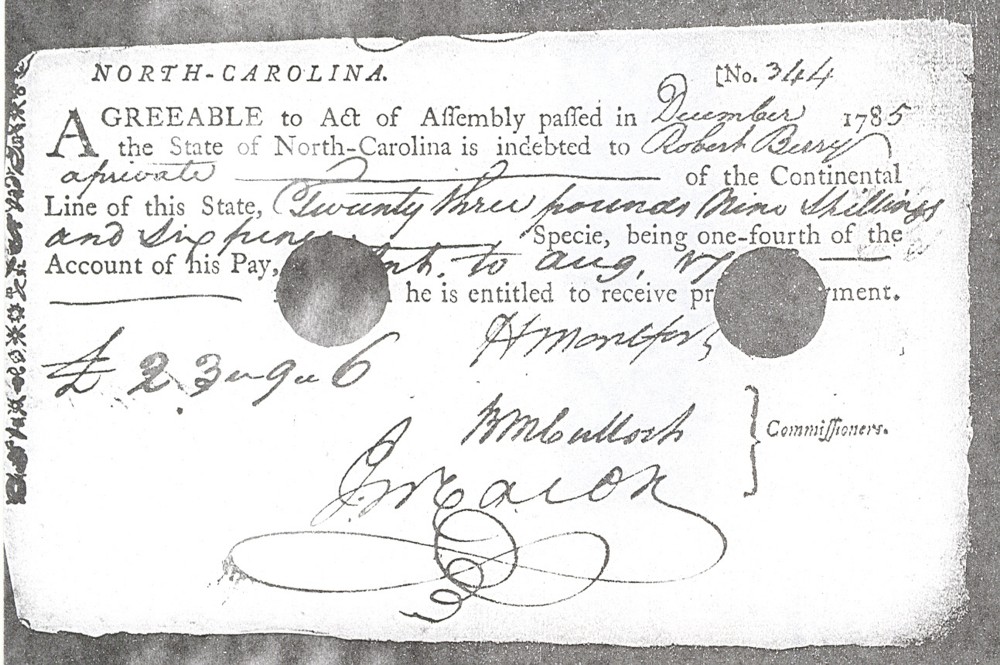 NORTH-CAROLINA. [No. 344
AGREEABLE to Act of Aſſembly paſſed in December 1785
the State of North-Carolina is indebted to Robert Berry
a private of the Continental
Line of this State, Twenty three pounds Nine Shillings
and Six pence Specie, being one-fourth of the
Account of his Pay, Int. to aug. 17
he is entitled to receive pr yment.
£ 23 " 9 " 6
H Montfort
B McCulloch
Commiſſioners.
J Macon